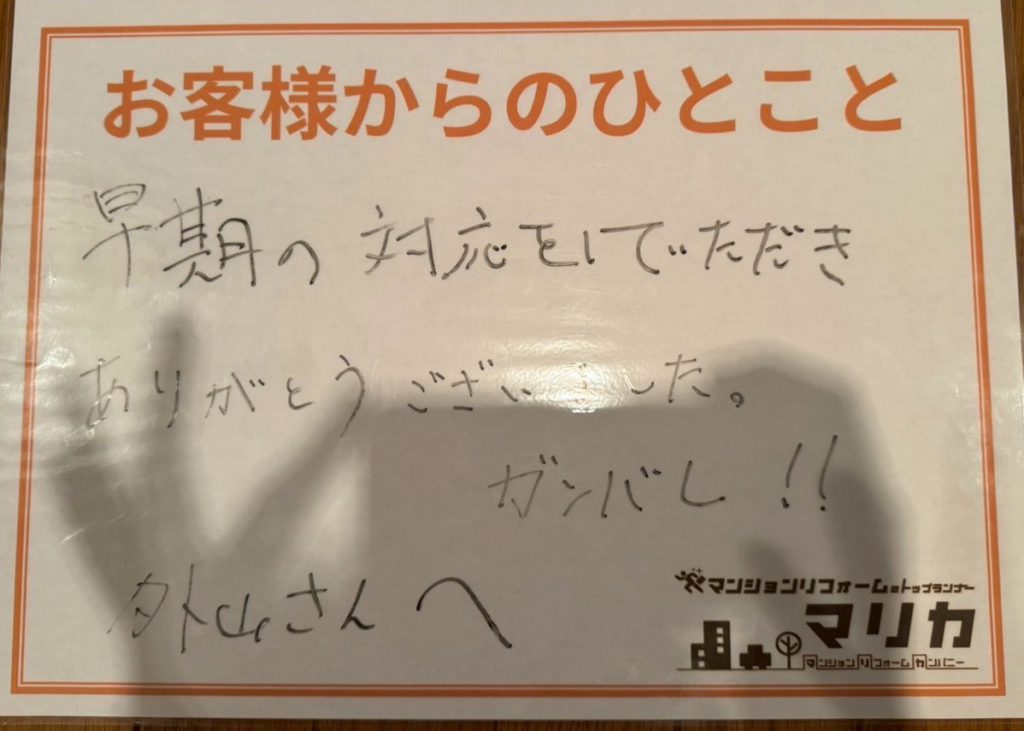 お客様からのひとこと
早期の対応をしていただき
ありがとうございました。
ガンバレ!!
外山さんへ
マンションリフォームのトップランナー
マリカ
マンションリフォームカンパニー